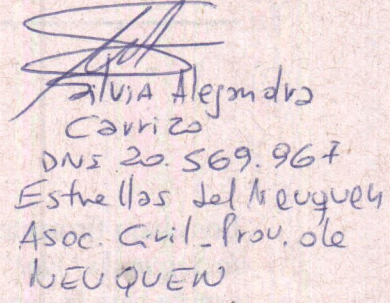 Silvia Alejandra
Carrizo
DNI 20.569.967
Estrellas del Neuquen
Asoc. Civil - Prov. de
NEUQUEN